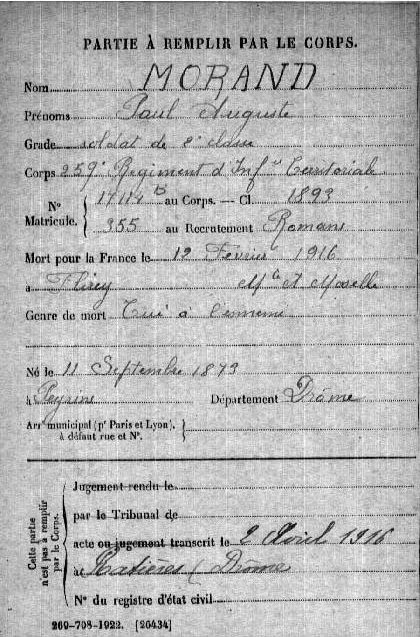 PARTIE À REMPLIR PAR LE CORPS.
Nom MORAND
Prénoms Paul Auguste
Grade soldat de 2e classe
Corps 259e Régiment d'Inf ie Territoriale
N° Matricule. { 17114 b au Corps. — Cl. 1893
355 au Recrutement Romans
Mort pour la France le 12 Février 1916
à Flirey Mthe et Moselle
Genre de mort Tué à l'ennemi
Né le 11 Septembre 1873
à Peyrins Département Drôme
Arrt municipal (pr Paris et Lyon), à défaut rue et N°. }
Cette partie n'est pas à remplir par le Corps.
Jugement rendu le
par le Tribunal de
acte ou jugement transcrit le 2 Avril 1916
à Ratières (Drôme
N° du registre d'état civil
269-708-1922. [26434]